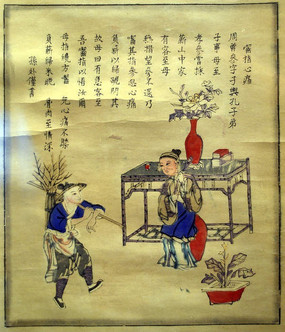 啮指心痛
周曾參字子輿孔子弟
子事母至
老參嘗採
薪山中家
有客至母
無措望參不還乃
嚙其指參忽心痛
負薪以歸跪問其
故母曰有急客至
吾嚙指以悟汝爾
母指纔方嚙兒心痛不禁
負薪歸來晚骨肉至情深
孫
書